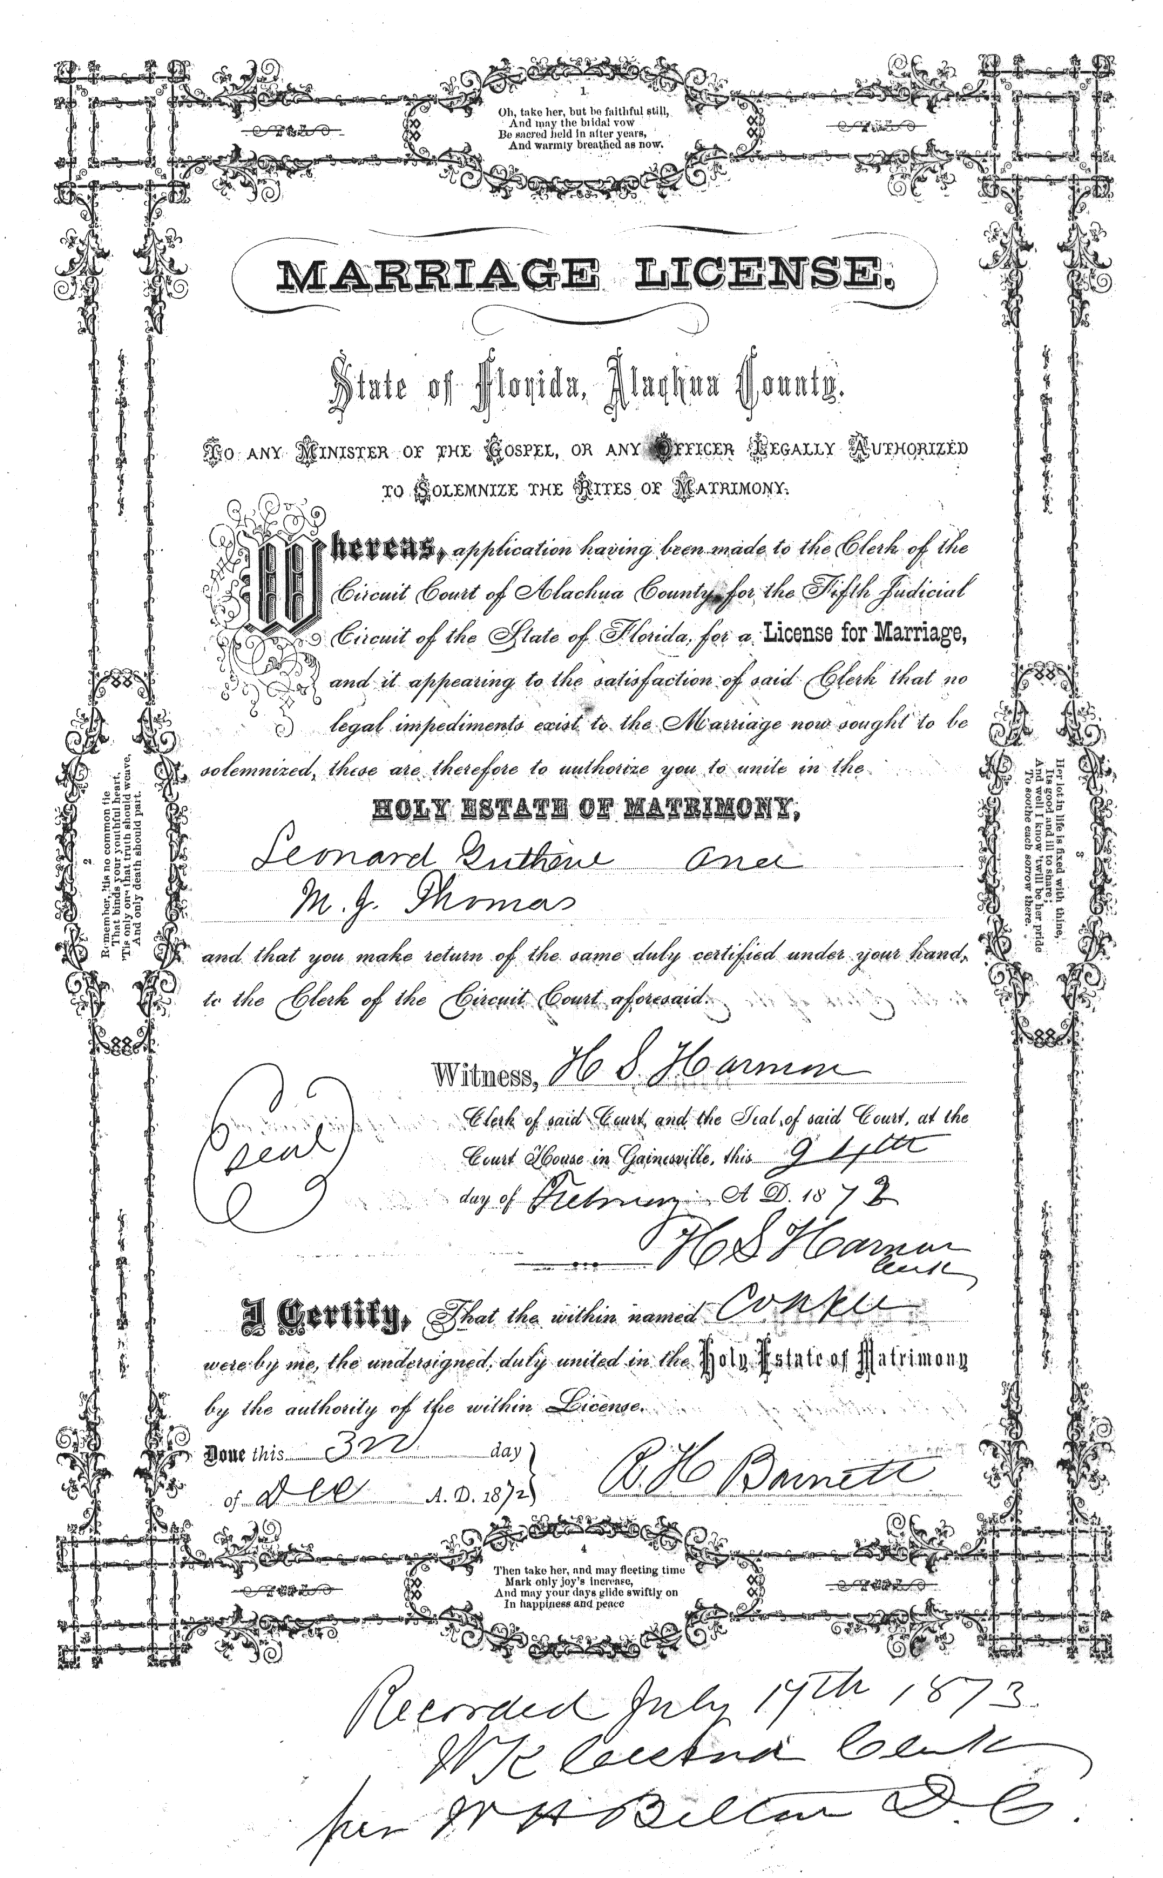 1
Oh, take her, but be faithful still,
And may the bridal vow
Be sacred held in after years,
And warmly breathed as now.
MARRIAGE LICENSE.
State of Florida, Alachua County.
TO ANY MINISTER OF THE GOSPEL, OR ANY OFFICER LEGALLY AUTHORIZED
TO SOLEMNIZE THE RITES OF MATRIMONY:
Whereas, application having been made to the Clerk of the
Circuit Court of Alachua County, for the Fifth Judicial
Circuit of the State of Florida, for a License for Marriage,
and it appearing to the satisfaction of said Clerk that no
legal impediments exist to the Marriage now sought to be
solemnized, these are therefore to authorize you to unite in the
HOLY ESTATE OF MATRIMONY,
Leonard and
M. J. Thomas
and that you make return of the same duly certified under your hand,
to the Clerk of the Circuit Court aforesaid.
2
Remember, 'tis no common tie
That binds your youthful heart,
'Tis only one that truth should weave,
And only death should part.
3
Her lot in life is fixed with thine,
Its good and ill to share;
And well I know 'twill be her pride
To soothe each sorrow there.
Witness, H S Harmon
Clerk of said Court, and the Seal of said Court, at the
Court House in Gainesville, this 24th
day of February A. D. 1872
Seal
H S Harmon
Clerk
I Certify, That the within named Couple
were by me, the undersigned, duly united in the Holy Estate of Matrimony
by the authority of the within License.
Done this 3rd day
of Dec A. D. 1872
R. H Barnett
4
Then take her, and may fleeting time
Mark only joy's increase,
And may your days glide swiftly on
In happiness and peace
Recorded July 17th 1873.
W K Clerk
per W H Belton D. C.